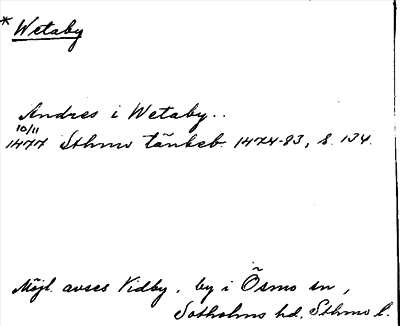 * Wetaby
Andres i Wetaby..
10/11
1477 Sthms tänkeb. 1474-83, s. 134.
Möjl. avses Vidby, by i Ösmo sn,
Sotholms hd, Sthms l.